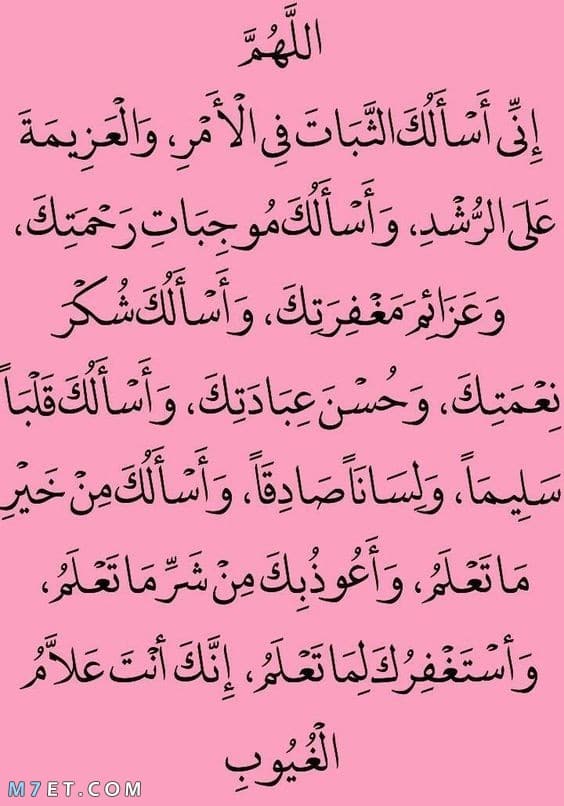 اللَّهُمَّ
إِنِّي أَسْأَلُكَ الثَّبَاتَ فِي الْأَمْرِ، وَالْعَزِيمَةَ
عَلَى الرُّشْدِ، وَأَسْأَلُكَ مُوجِبَاتِ رَحْمَتِكَ،
وَعَزَائِمَ مَغْفِرَتِكَ، وَأَسْأَلُكَ شُكْرَ
نِعْمَتِكَ، وَحُسْنَ عِبَادَتِكَ، وَأَسْأَلُكَ قَلْبَاً
سَلِيمَاً، وَلِسَانَاً صَادِقَاً، وَأَسْأَلُكَ مِنْ خَيْرِ
مَا تَعْلَمُ، وَأَعُوذُ بِكَ مِنْ شَرِّ مَا تَعْلَمُ،
وَأَسْتَغْفِرُكَ لِمَا تَعْلَمُ، إِنَّكَ أَنْتَ عَلاَّمُ
الْغُيُوبِ
M7ET.COM